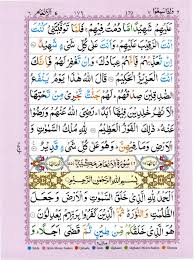 عَلَيْهِمْ شَهِيْدًا مَّا دُمْتُ فِيْهِمْ ۚ فَلَمَّا تَوَفَّيْتَنِيْ كُنْتَ
اَنْتَ الرَّقِيْبَ عَلَيْهِمْ ؕ وَاَنْتَ عَلٰى كُلِّ شَيْءٍ شَهِيْدٌ اِنْ
تُعَذِّبْهُمْ فَاِنَّهُمْ عِبَادُكَ ۚ وَاِنْ تَغْفِرْ لَهُمْ فَاِنَّكَ اَنْتَ
الْعَزِيْزُ الْحَكِيْمُ قَالَ اللّٰهُ هٰذَا يَوْمُ يَنْفَعُ
الصّٰدِقِيْنَ صِدْقُهُمْ ؕ لَهُمْ جَنّٰتٌ تَجْرِيْ مِنْ تَحْتِهَا
الْاَنْهٰرُ خٰلِدِيْنَ فِيْهَاۤ اَبَدًا ؕ رَضِيَ اللّٰهُ عَنْهُمْ وَرَضُوْا
عَنْهُ ؕ ذٰلِكَ الْفَوْزُ الْعَظِيْمُ لِلّٰهِ مُلْكُ السَّمٰوٰتِ
وَالْاَرْضِ وَمَا فِيْهِنَّ ؕ وَهُوَ عَلٰى كُلِّ شَيْءٍ قَدِيْرٌ
بِسْمِ اللّٰهِ الرَّحْمٰنِ الرَّحِيْمِ
اَلْحَمْدُ لِلّٰهِ الَّذِيْ خَلَقَ السَّمٰوٰتِ وَالْاَرْضَ وَجَعَلَ
الظُّلُمٰتِ وَالنُّوْرَ ؕ ثُمَّ الَّذِيْنَ كَفَرُوْا بِرَبِّهِمْ يَعْدِلُوْنَ
هُوَ الَّذِيْ خَلَقَكُمْ مِّنْ طِيْنٍ ثُمَّ قَضٰۤى اَجَلًا ؕ